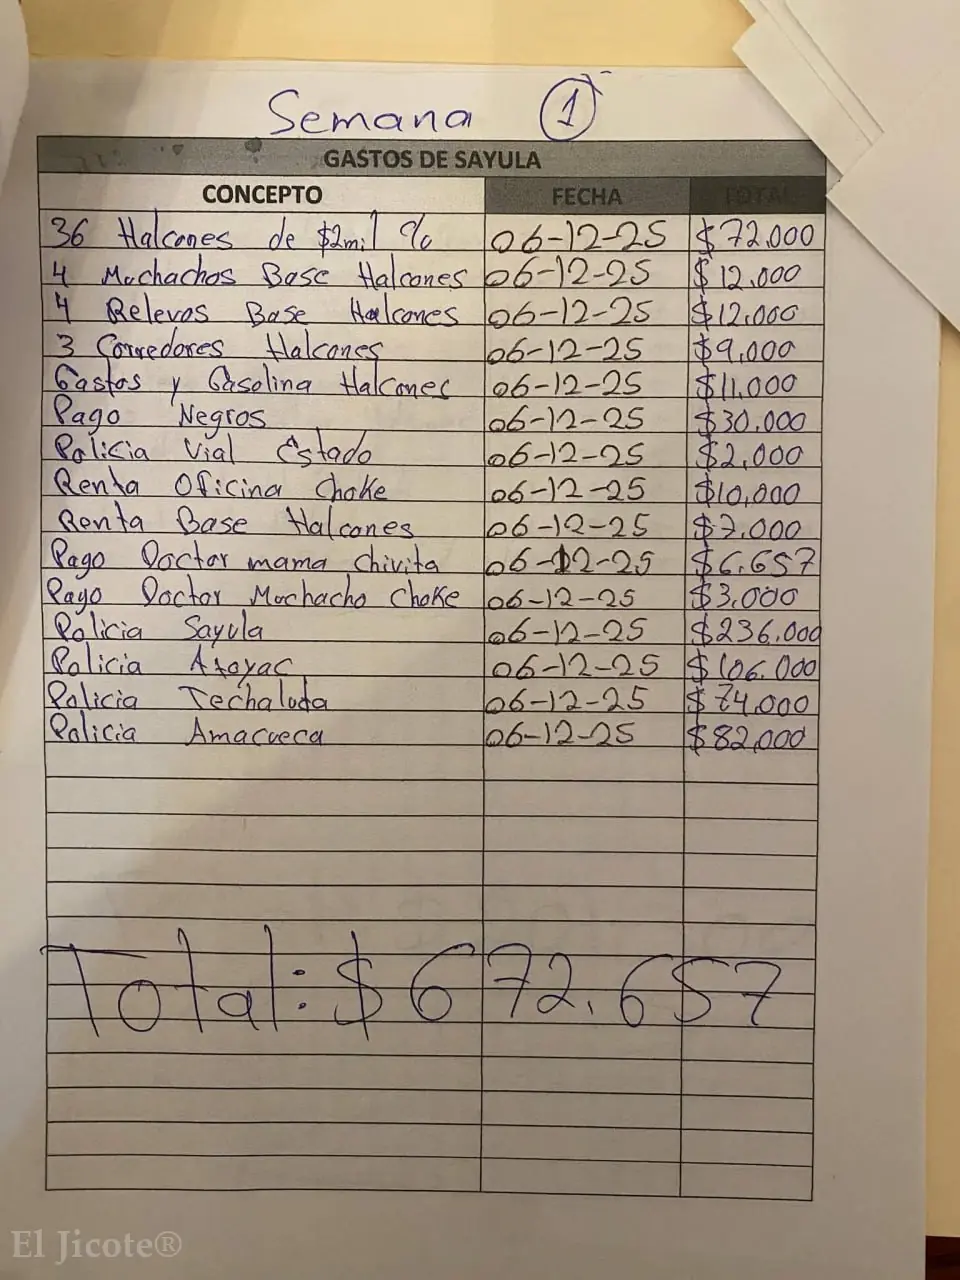 Semana 1
GASTOS DE SAYULA
CONCEPTO FECHA TOTAL
36 Halcones de $2mil % 06-12-25 $72.000
4 Muchachos Base Halcones 06-12-25 $12.000
4 Relevos Base Halcones 06-12-25 $12.000
3 Corredores Halcones 06-12-25 $9,000
Gastos y Gasolina Halcones 06-12-25 $11,000
Pago Negros 06-12-25 $30.000
Policia Vial Estado 06-12-25 $2,000
Renta Oficina Choke 06-12-25 $10,000
Renta Base Halcones 06-12-25 $7.000
Pago Doctor mama Chivita 06-12-25 $6.657
Pago Doctor Muchacho Choke 06-12-25 $3.000
Policia Sayula 06-12-25 $236.000
Policia Atoyac 06-12-25 $106.000
Policia Techaluta 06-12-25 $74.000
Policia Amacueca 06-12-25 $82,000
Total: $672.657
El Jicote®